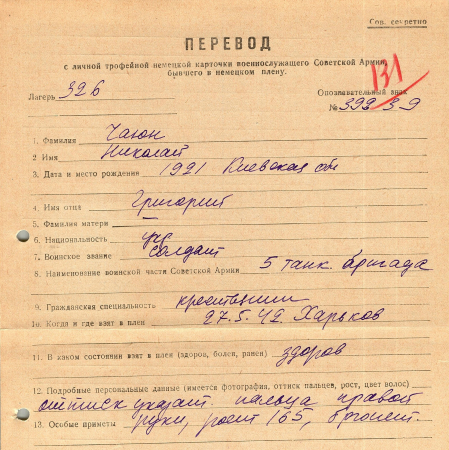 Сов. секретно
ПЕРЕВОД
с личной трофейной немецкой карточки военнослужащего Советской Армии,
бывшего в немецком плену.
131
Лагерь 326
Опознавательный знак
№ 39239
1. Фамилия Чаюн
2 Имя Николай
3. Дата и место рождения 1921 Киевская об
4. Имя отца Григорий
5. Фамилия матери —
6. Национальность укр
7. Воинское звание солдат
8. Наименование воинской части Советской Армии 5 танк. бригада
9. Гражданская специальность крестьянин
10. Когда и где взят в плен 27.5.42. Харьков
11. В каком состоянии взят в плен (здоров, болен, ранен) здоров
12. Подробные персональные данные (имеется фотография, оттиск пальцев, рост, цвет волос)
оттиск указат. пальца правой
13. Особые приметы руки, рост 165,